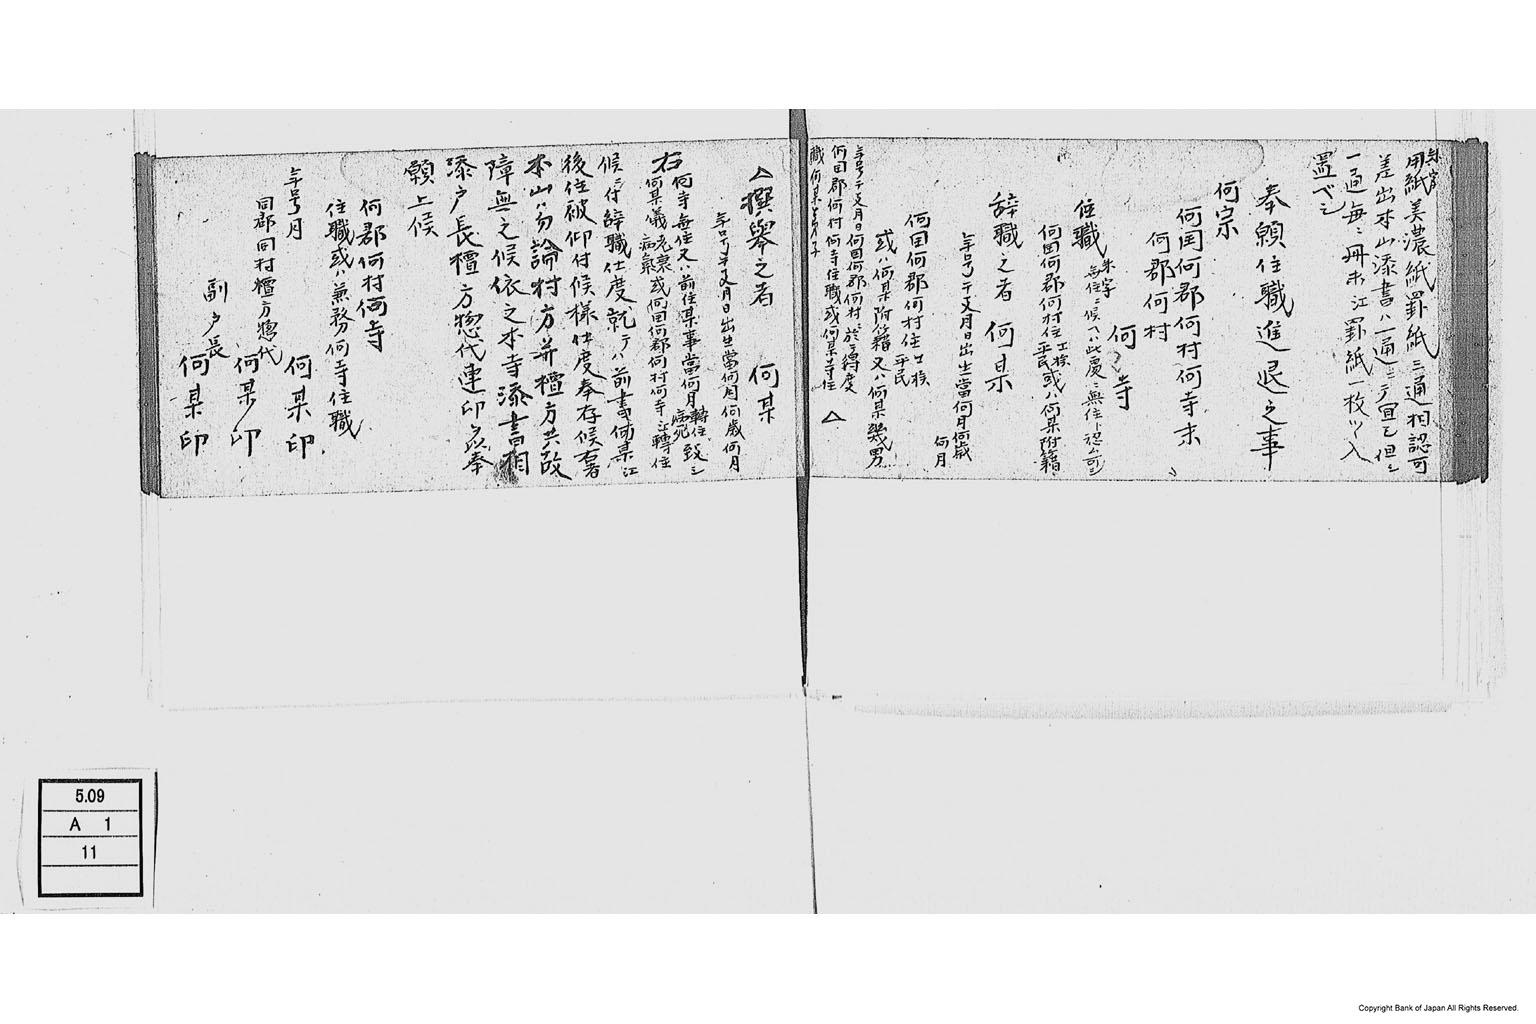 朱字
用紙美濃紙罫紙ニ三通相認可
差出本山添書ハ一通ニテ宜シ但シ
一通毎ニ冊末江罫紙一枚ツヽ入
置ベシ
奉願住職進退之事
何宗
何国何郡何村何寺末
何郡何村
何寺
朱字
無住ニ候ヘハ此處ニ無住ト認ム可シ
住職
何国何郡何村住士族平民或ハ何某附籍
辞職之者 何某
年号干支月日出生当何月何歳
何月
何国何郡何村住士族平民
或ハ何某附籍又ハ何某幾男
年号干支月日何国何郡何村ニ於テ得度
何国何郡何村何寺住職或何某寺住
職何某弟子
△
△撰挙之者 何某
年号干支月日出生當何月何歳何月
右何寺無住又ハ前住某事當何月轉住病死致シ
何某儀老衰病氣或何国何郡何村何寺江轉住
候ニ付辞職仕度就テハ前書何某江
後住被仰付候様仕度奉存候右者
本山ハ勿論村方并檀方共故
障無之候依之本寺添書相
添戸長檀方惣代連印以奉
願上候
何郡何村何寺
住職或ハ兼務何寺住職
年号月
何某印
同郡同村檀方惣代
何某印
副戸長
何某印
5.09
A 1
11
Copyright Bank of Japan All Rights Reserved.